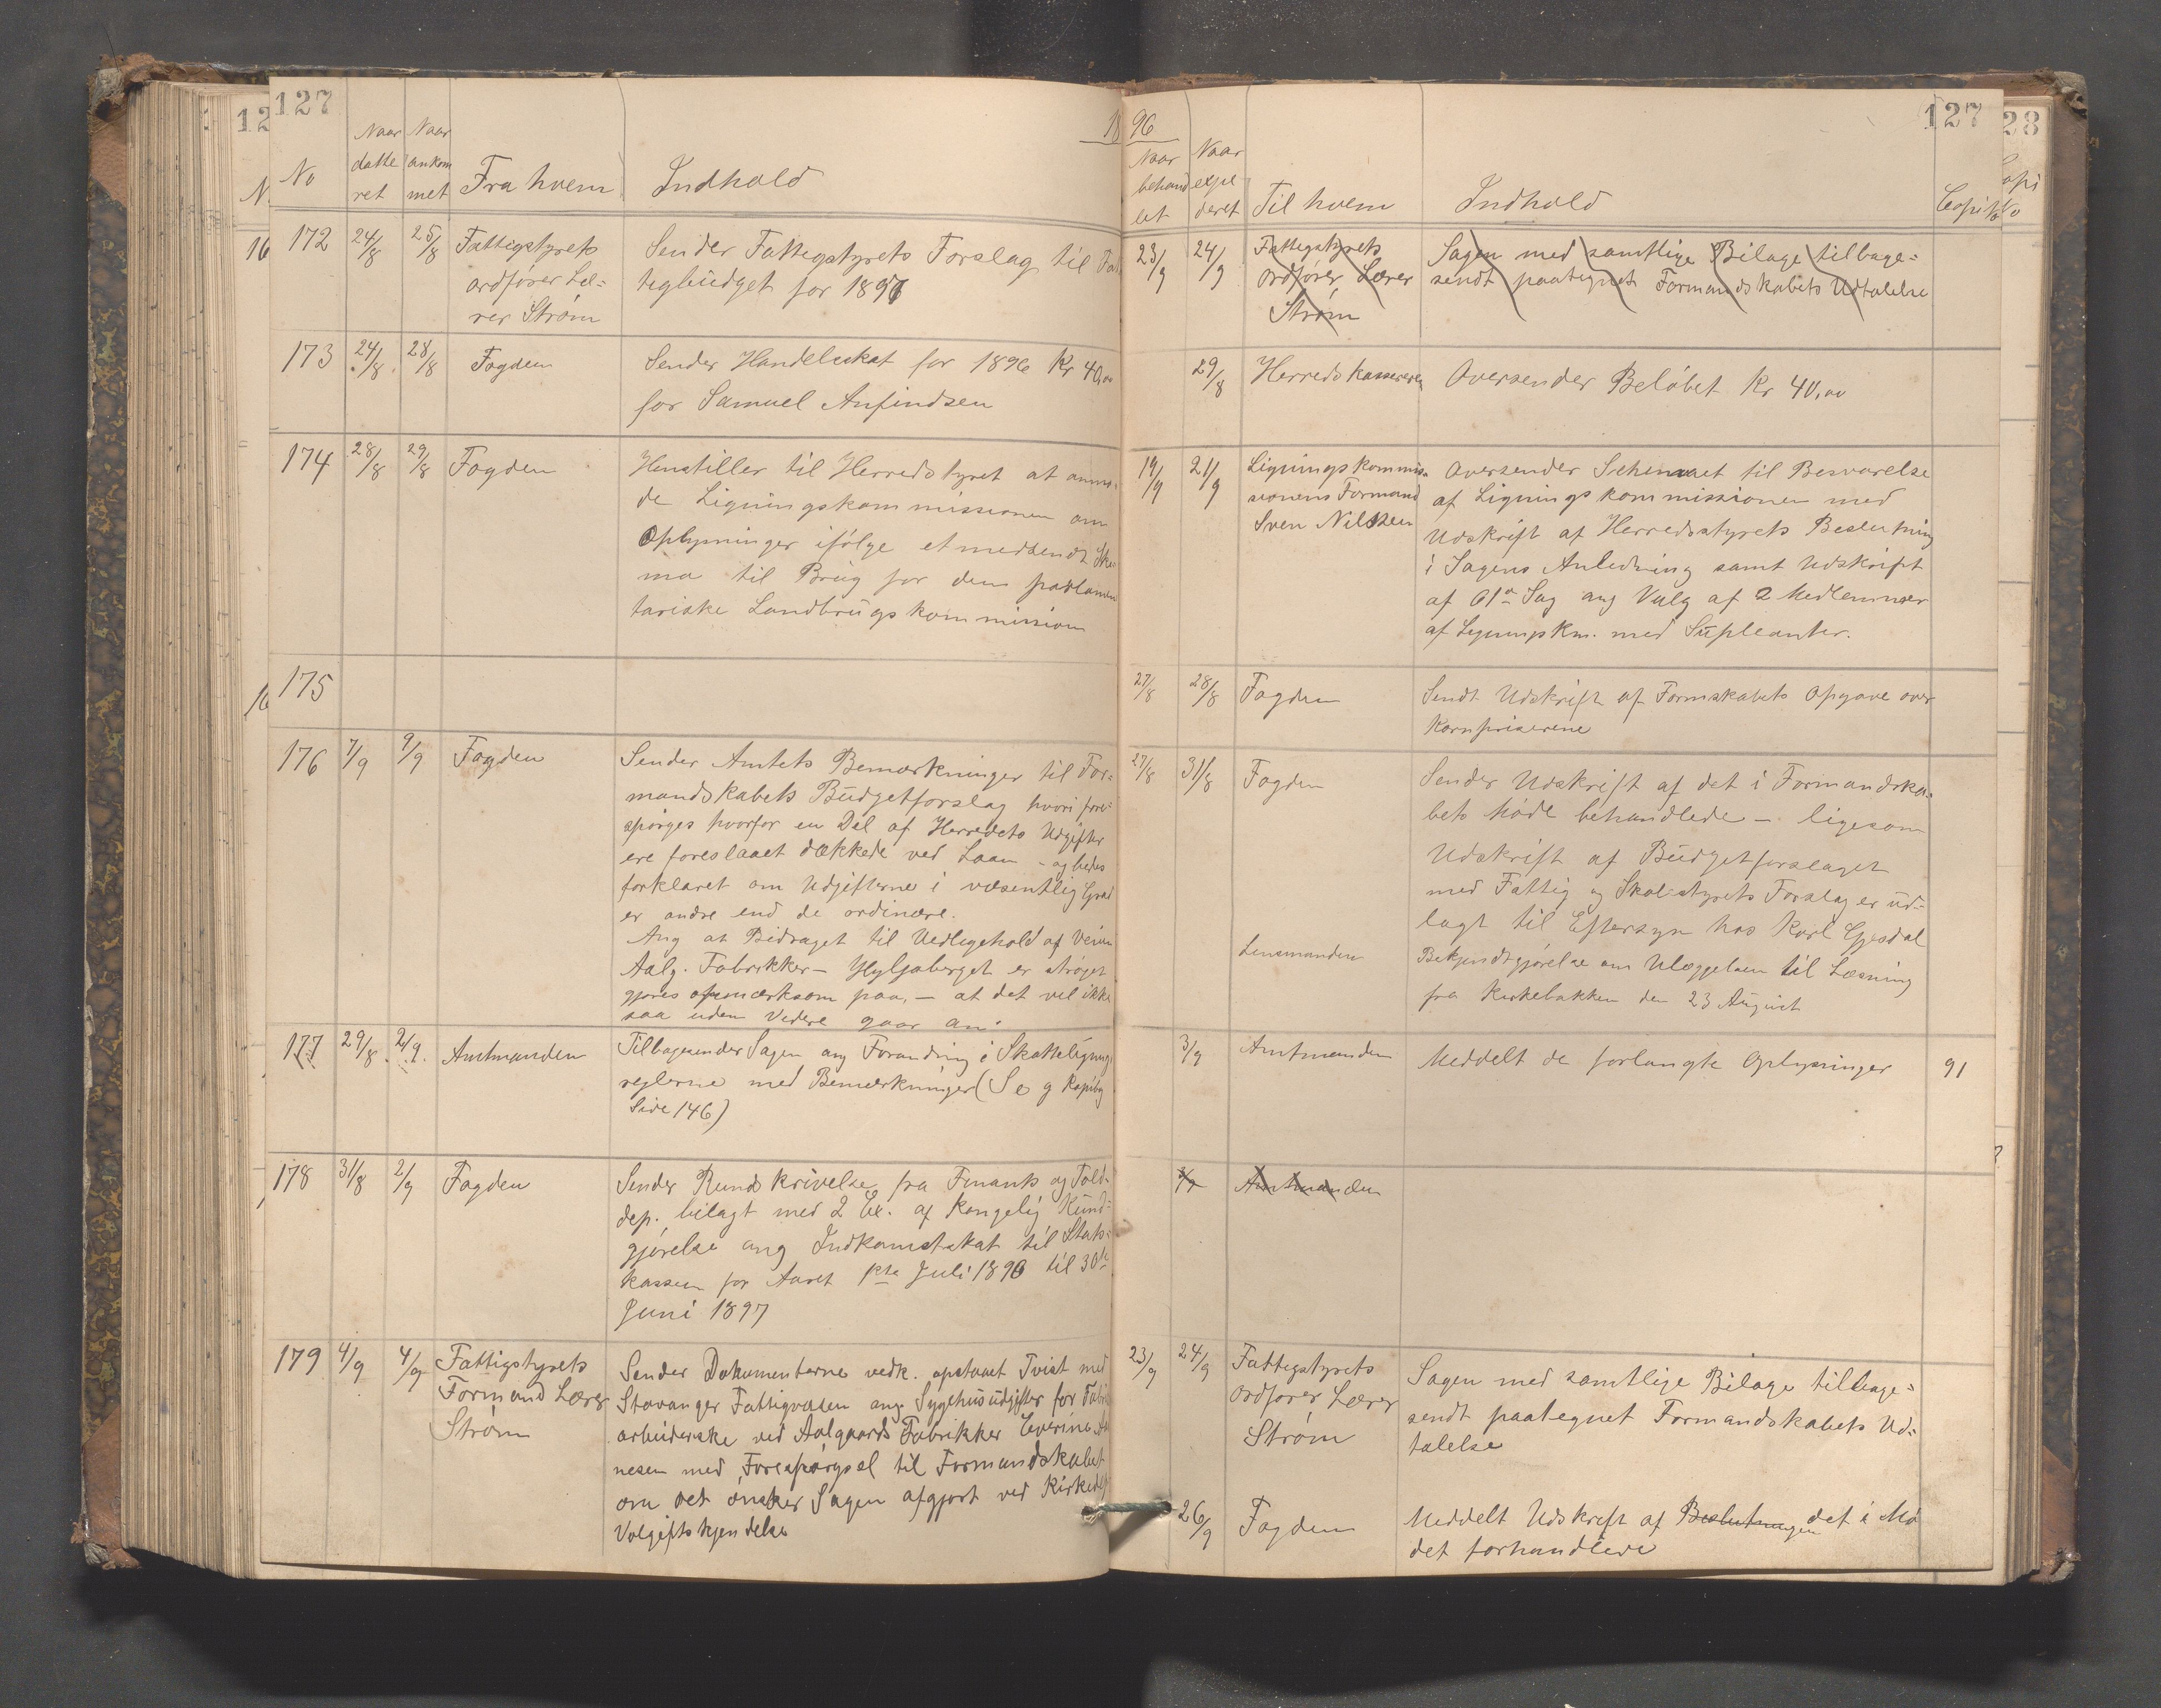 127
No
Naar datte ret
Naar ankom met
Fra hvem
Indhold
172 24/8 25/8 Fattigstyrets
ordfører Læ-
rer Strøm
Sender Fattigstyrets Forslag til Fat
tigbudget for 1897
173 24/8 28/8 Fogden
Sender Handelsskat for 1896 Kr 40,00
for Samuel Anfindsen
174 28/8 29/8 Fogden
Henstiller til Herredstyret at anmo-
de Ligningskommissionen om
Oplysninger ifølge et medsendt Ske
ma til Brug for den parlamen
tariske Landbrugskommission
175
176 7/9 9/9 Fogden
Sender Amtets Bemærkninger til For-
mandskabets Budgetforslag hvori fore-
spørges hvorfor en Del af Herredets Udgifter
ere foreslaaet dækkede ved Laan - og bedes
forklaret om Udgifterne i væsentlig Grad
er andre end de ordinære.
Ang at Bidraget til Vedligehold af Veien
Aalg. Fabrikker - Hyljaberget er strøget
gjøres opmærksom paa, - at det vel ikke
saa uden Videre gaar an.
177 29/8 2/9 Amtmanden
Tilbagesender Sagen ang Forandring i Skatteligning
reglerne med Bemærkninger (Se g Kopibog
Side 146)
178 31/8 2/9 Fogden
Sender Rundskrivelse fra Finants og Told-
dep. bilagt med 2 Ex. af Kongelig Kund-
gjørelse ang Indkomstskat til Stats-
kassen for Aaret 1ste Juli 1896 til 30te
Juni 1897
179 4/9 4/9 Fattigstyrets
Formand Lærer
Strøm
Sender Dokumenterne vedk. opstaaet Tvist med
Stavanger Fattigvæsen ang Sygehusudgifter for Fabrik
arbeiderske ved Aalgaards Fabrikker Everine
nesen med Forespørgsel til Formandskabet
om det ønsker Sagen afgjort ved Kirkedep
Volgiftskjendelse
1896
127
Naar behand let
Naar expe deret
Til hvem
Indhold
Copib No
23/9 24/9 Fattigstyrets
Ordfører Lærer
Strøm
Sagen med samtlige Bilage tilbage-
sendt paategnet Formandskabets Udtalelse
29/8 Herredskassereren
Oversender Beløbet Kr 40,00
19/9 21/9 Ligningskommis-
sionens Formand
Sven Nilssen
Oversender Schemaet til Besvarelse
af Ligningskommissionen med
Udskrift af Herredsstyrets Beslutning
i Sagens Anledning samt Udskrift
af Sag ang Valg af 2 Medlemmer
af Ligningskm. med Supleanter.
27/8 28/8 Fogden
Sendt Udskrift af Formskabets Opgave over
Kornpriserne
27/8 31/8 Fogden
Sender Udskrift af det i Formandska-
bets Møde behandlede - ligesom
Udskrift af Budgetforslaget
med Fattig og Skolestyrets Forslag er ud-
lagt til Eftersyn hos Karl Gjesdal
Lensmanden
Bekjendtgjørelse om Ulæggelsen til Læsning
fra Kirkebakken den 23 August
3/9 Amtmanden
Meddelt de forlangte Oplysninger
91
Amtmanden
23/9 24/9 Fattigstyrets
Ordfører Lærer
Strøm
Sagen med samtlige Bilage tilbage-
sendt paategnet Formandskabets Ud-
talelse
26/9 Fogden
Meddelt Udskrift af Beslutningen det i Mø
det forhandlede
28